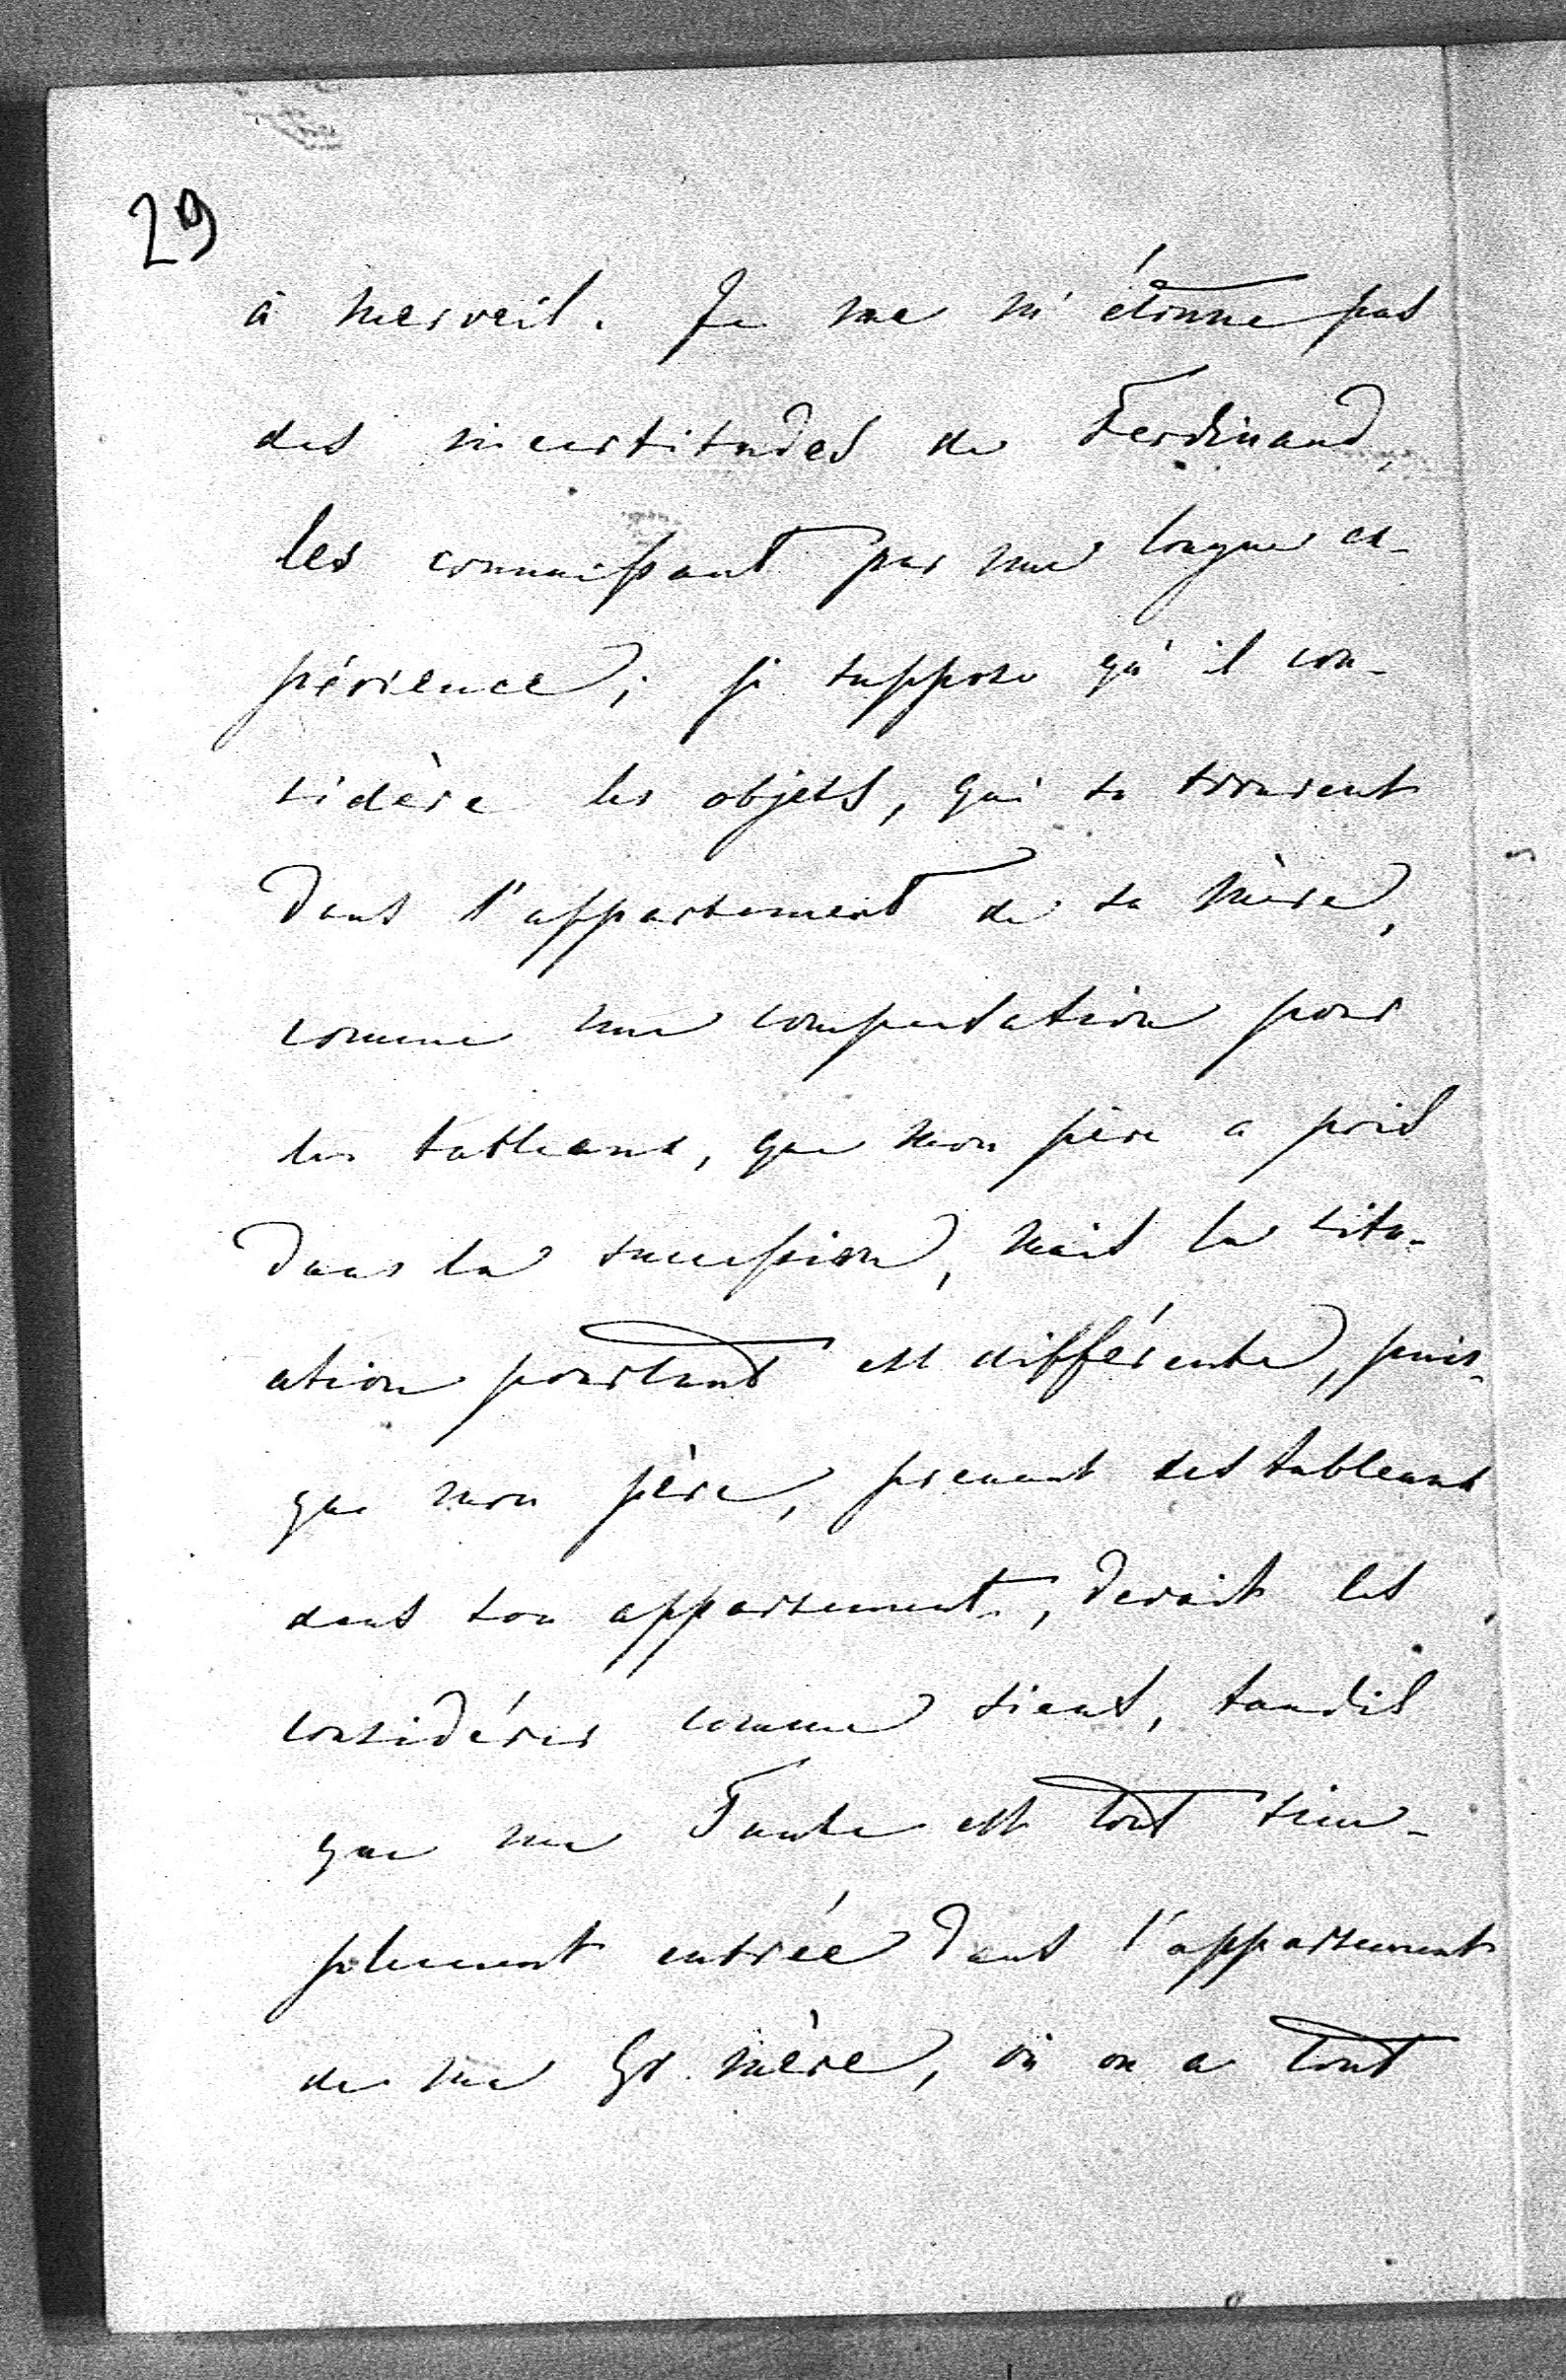 29
à merveil. Je ne m'étonne pas
des incertitudes de Ferdinand,
les connaissant par une longue ex-
périence; je suppose qu'il con-
sidère les objets, qui se trouvent
dans l'appartement de sa mère,
comme une compensation pour
les tableaux, que mon père a pris
dans la succession, mais la situ-
ation pourtant est différente, puis-
que mon père, prenant des tableaux
dans son appartement, devait les
considérer comme siens, tandis
que ma Tante est tout sim-
plement entrée dans l'appartement
de ma Gr. mère, où on a tout